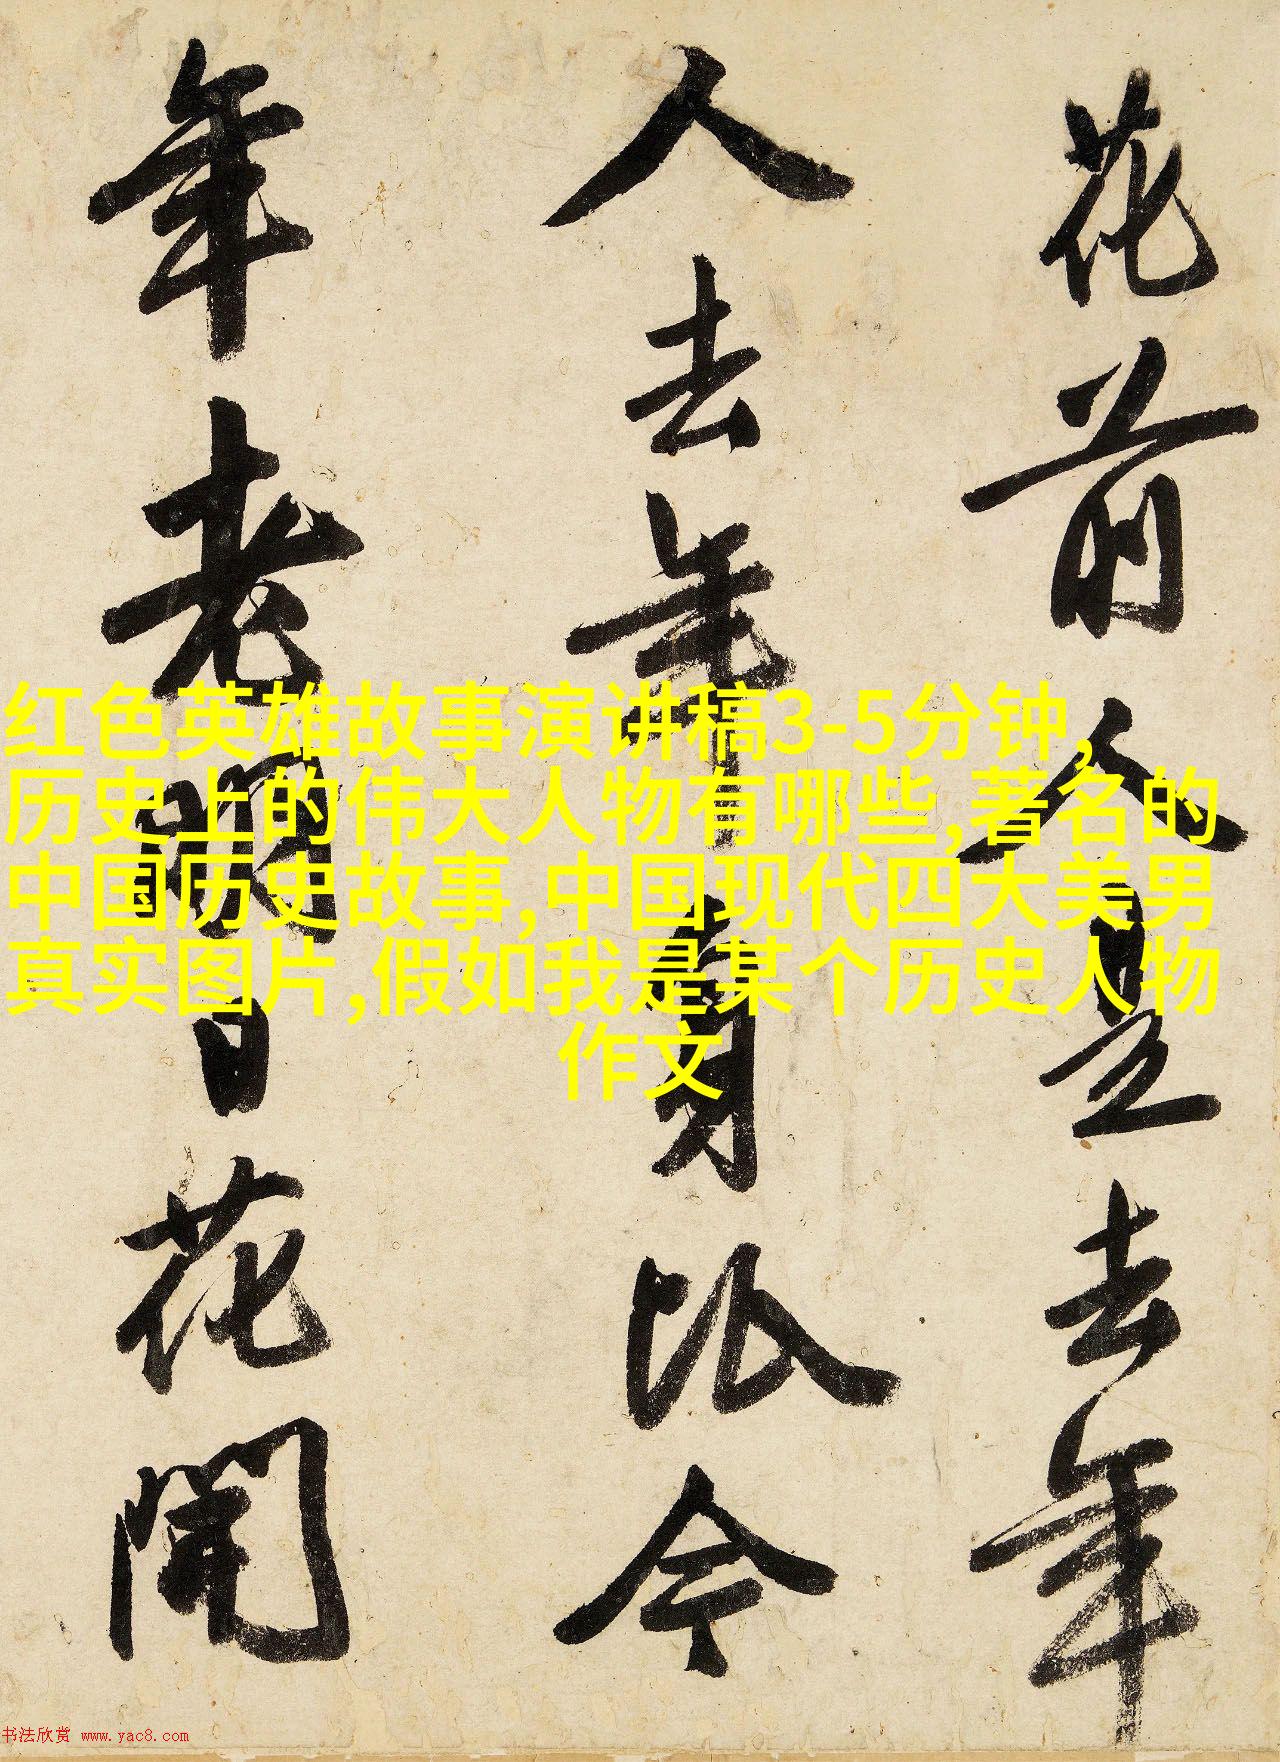 花前人是去年
人去年身比今
年老明日花開
红色英雄故事演讲稿3-5分钟,
历史上的伟大人物有哪些,著名的
中国历史故事,中国现代四大美男
真实图片,假如我是某个历史人物
作文
书法欣赏 www.yac8.com